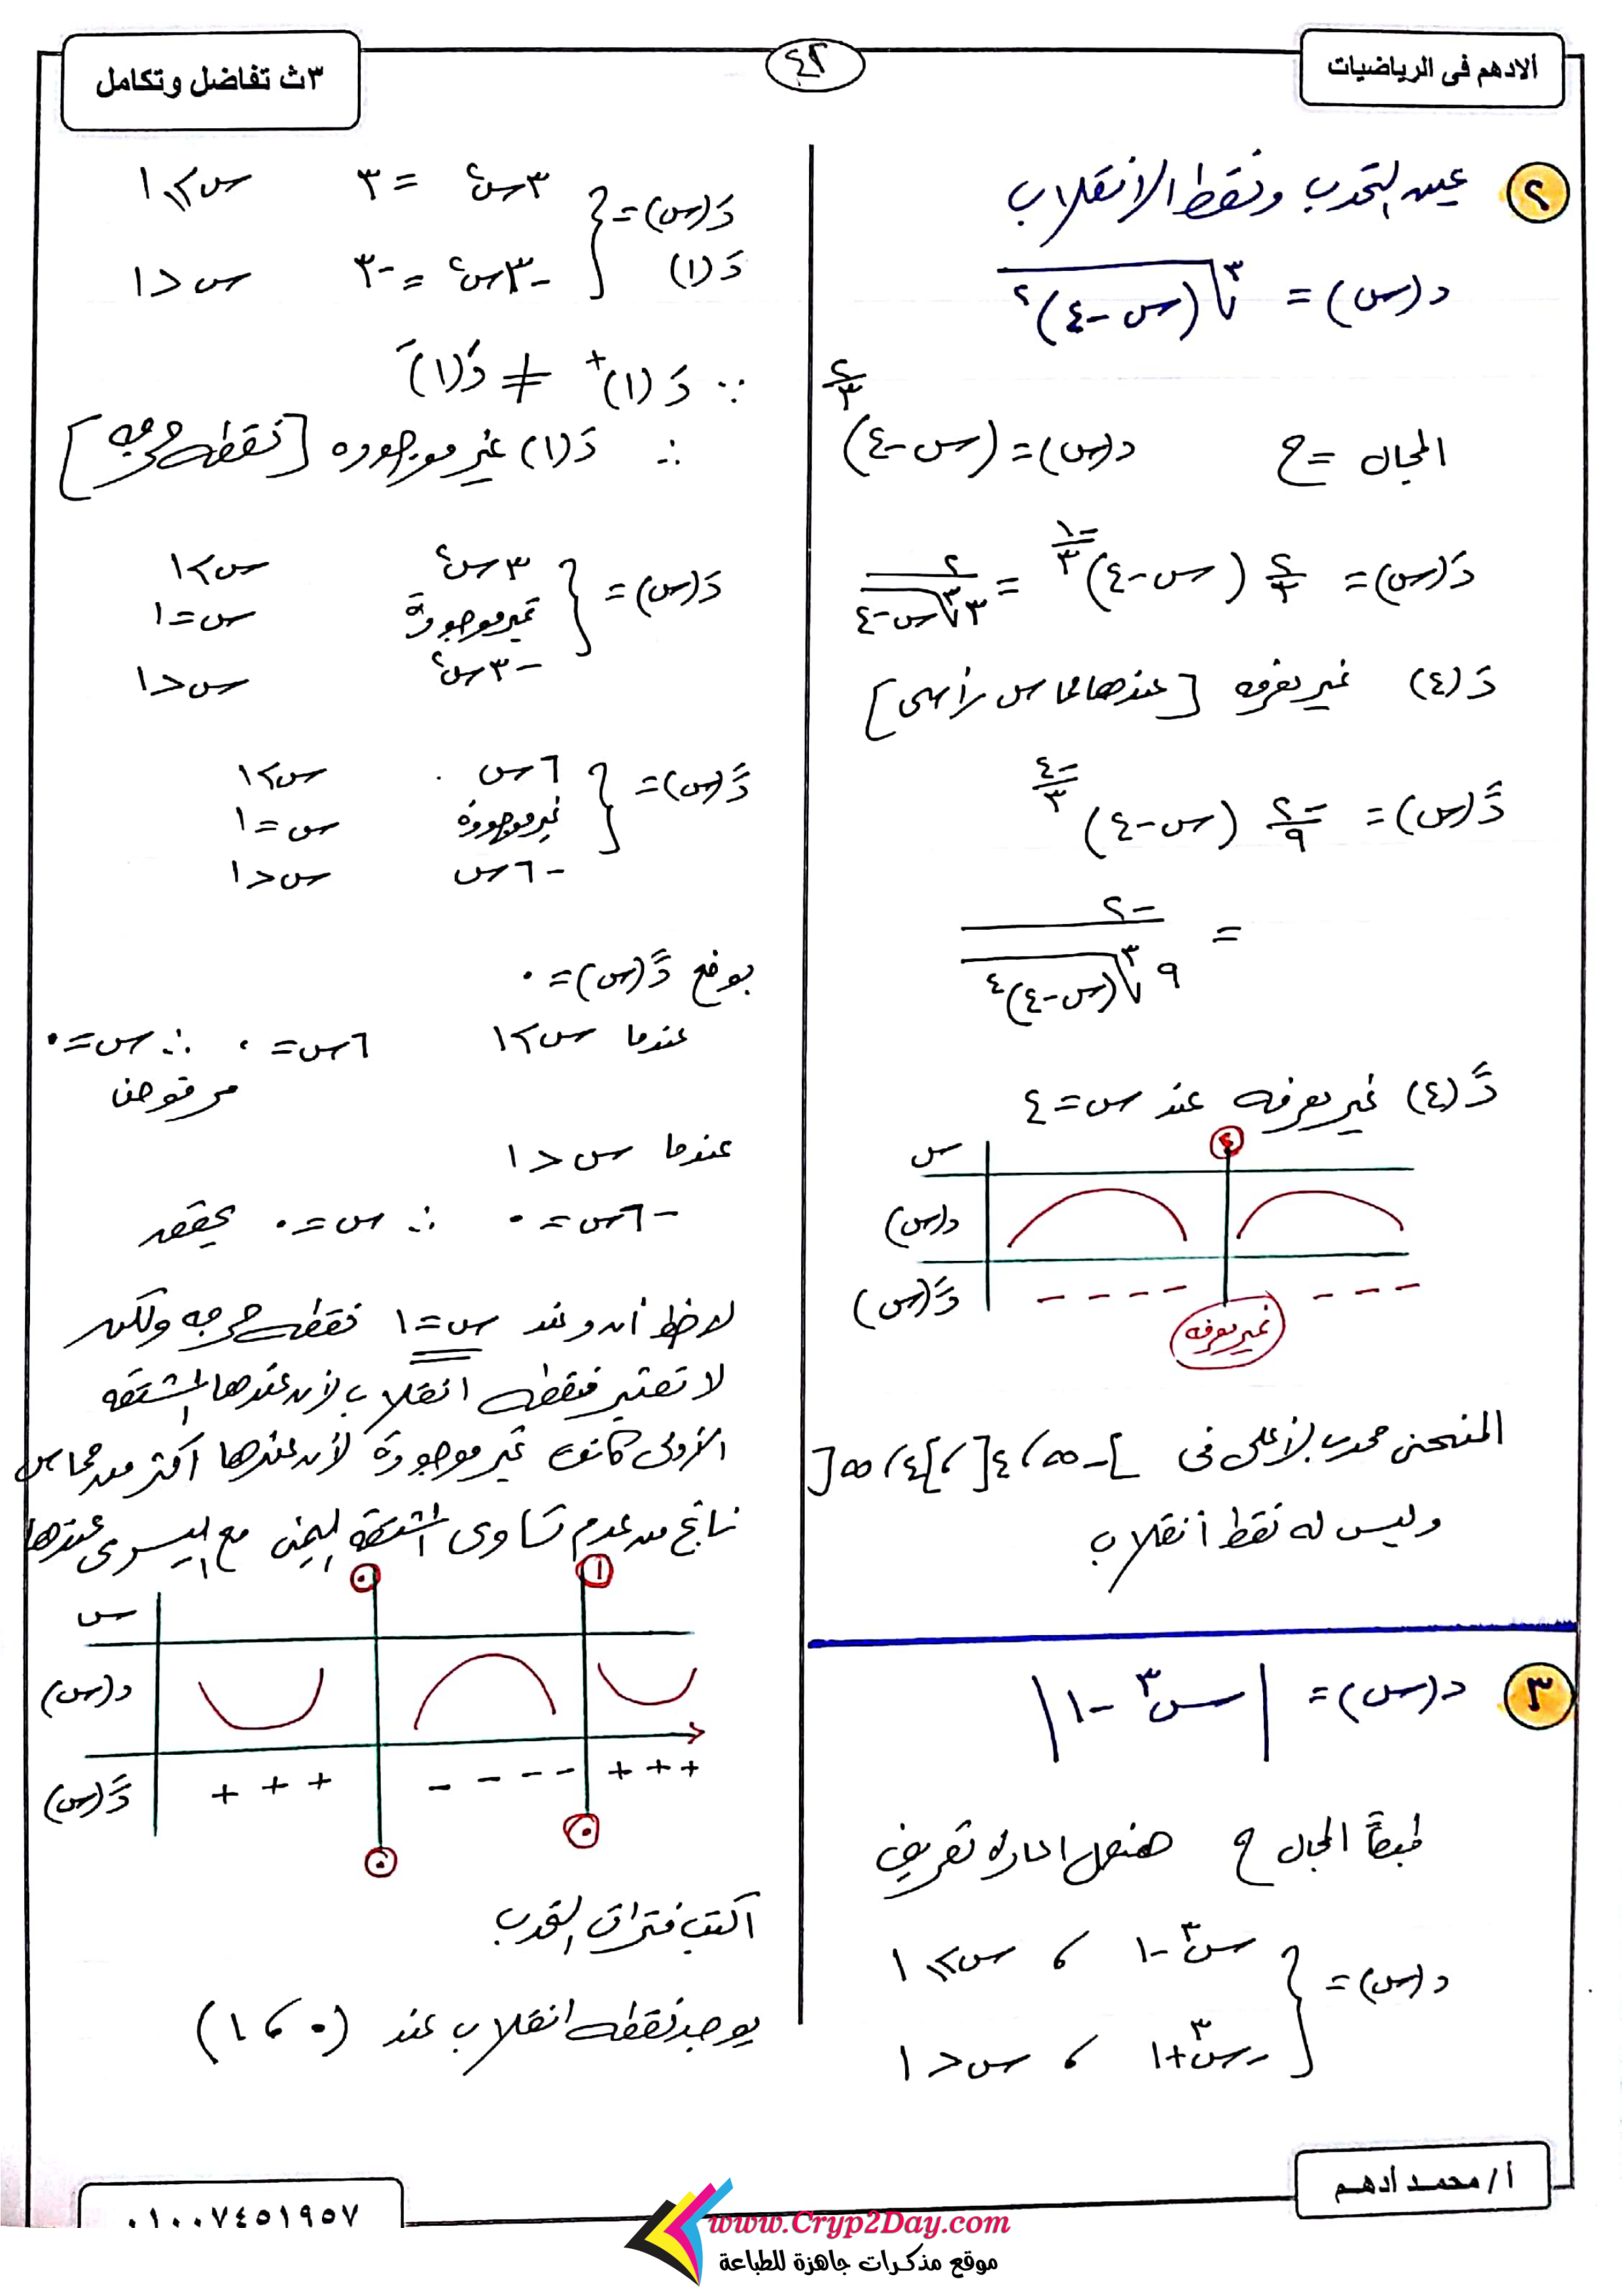 ألادهم فى الرياضيات
٤٢
٣ث تفاضل وتكامل
٢ عين التحدب ونقط الانقلاب
د(س) = ∛(س-٤)^٢
المجال = ح د(س) = (س-٤)^(٢/٣)
دَ(س) = ٢/٣ (س-٤)^(-١/٣) = ٢/(٣∛(س-٤))
دَ(٤) غير معرفه [عندها مماس رأسى]
دً(س) = -٢/٩ (س-٤)^(-٤/٣)
= -٢/(٩∛(س-٤)^٤)
دً(٤) غير معرفه عند س=٤
س ٤
د(س)
دً(س) - - - - - - -
غير معرفه
المنحنى محدب لأعلى فى ]-∞، ٤[ ، ]٤، ∞[
وليس له نقط أنقلاب
٣ د(س) = |س^٣ -١|
طبعاً المجال ح هنعمل اعادة تعريف
د(س) = { س^٣ -١ ، س≥١
-س^٣ +١ ، س<١
دَ(س) = { ٣س^٢ = ٣ س≥١
دَ(١) -٣س^٢ = -٣ س<١
∵ دَ(١)^+ ≠ دَ(١)^-
∴ دَ(١) غير موجوده [نقطه حرجه]
دَ(س) = { ٣س^٢ س>١
غير موجودة س=١
-٣س^٢ س<١
دً(س) = { ٦س س>١
غير موجودة س=١
-٦س س<١
بوضع دً(س) = ٠
عندما س>١ ٦س=٠ ∴ س=٠
مرفوض
عندما س<١
-٦س=٠ ∴ س=٠ يحقق
لاحظ أن عند س=١ نقطه حرجه ولكن
لا تعتبر نقطه انقلاب لأن عندها المشتقه
الأولى كانت غير موجودة لأن عندها أكثر من مماس
ناتج من عدم تساوى المشتقة اليمنى مع اليسرى عندها
س ٠ ١
د(س)
دً(س) + + + - - - - + + +
٠ ٠
اكتب فترات التحدب
يوجد نقطه انقلاب عند (٠ ، ١)
أ/ محمد أدهم
٠١٠٠٧٤٥١٩٥٧
www.Cryp2Day.com
موقع مذكرات جاهزة للطباعة